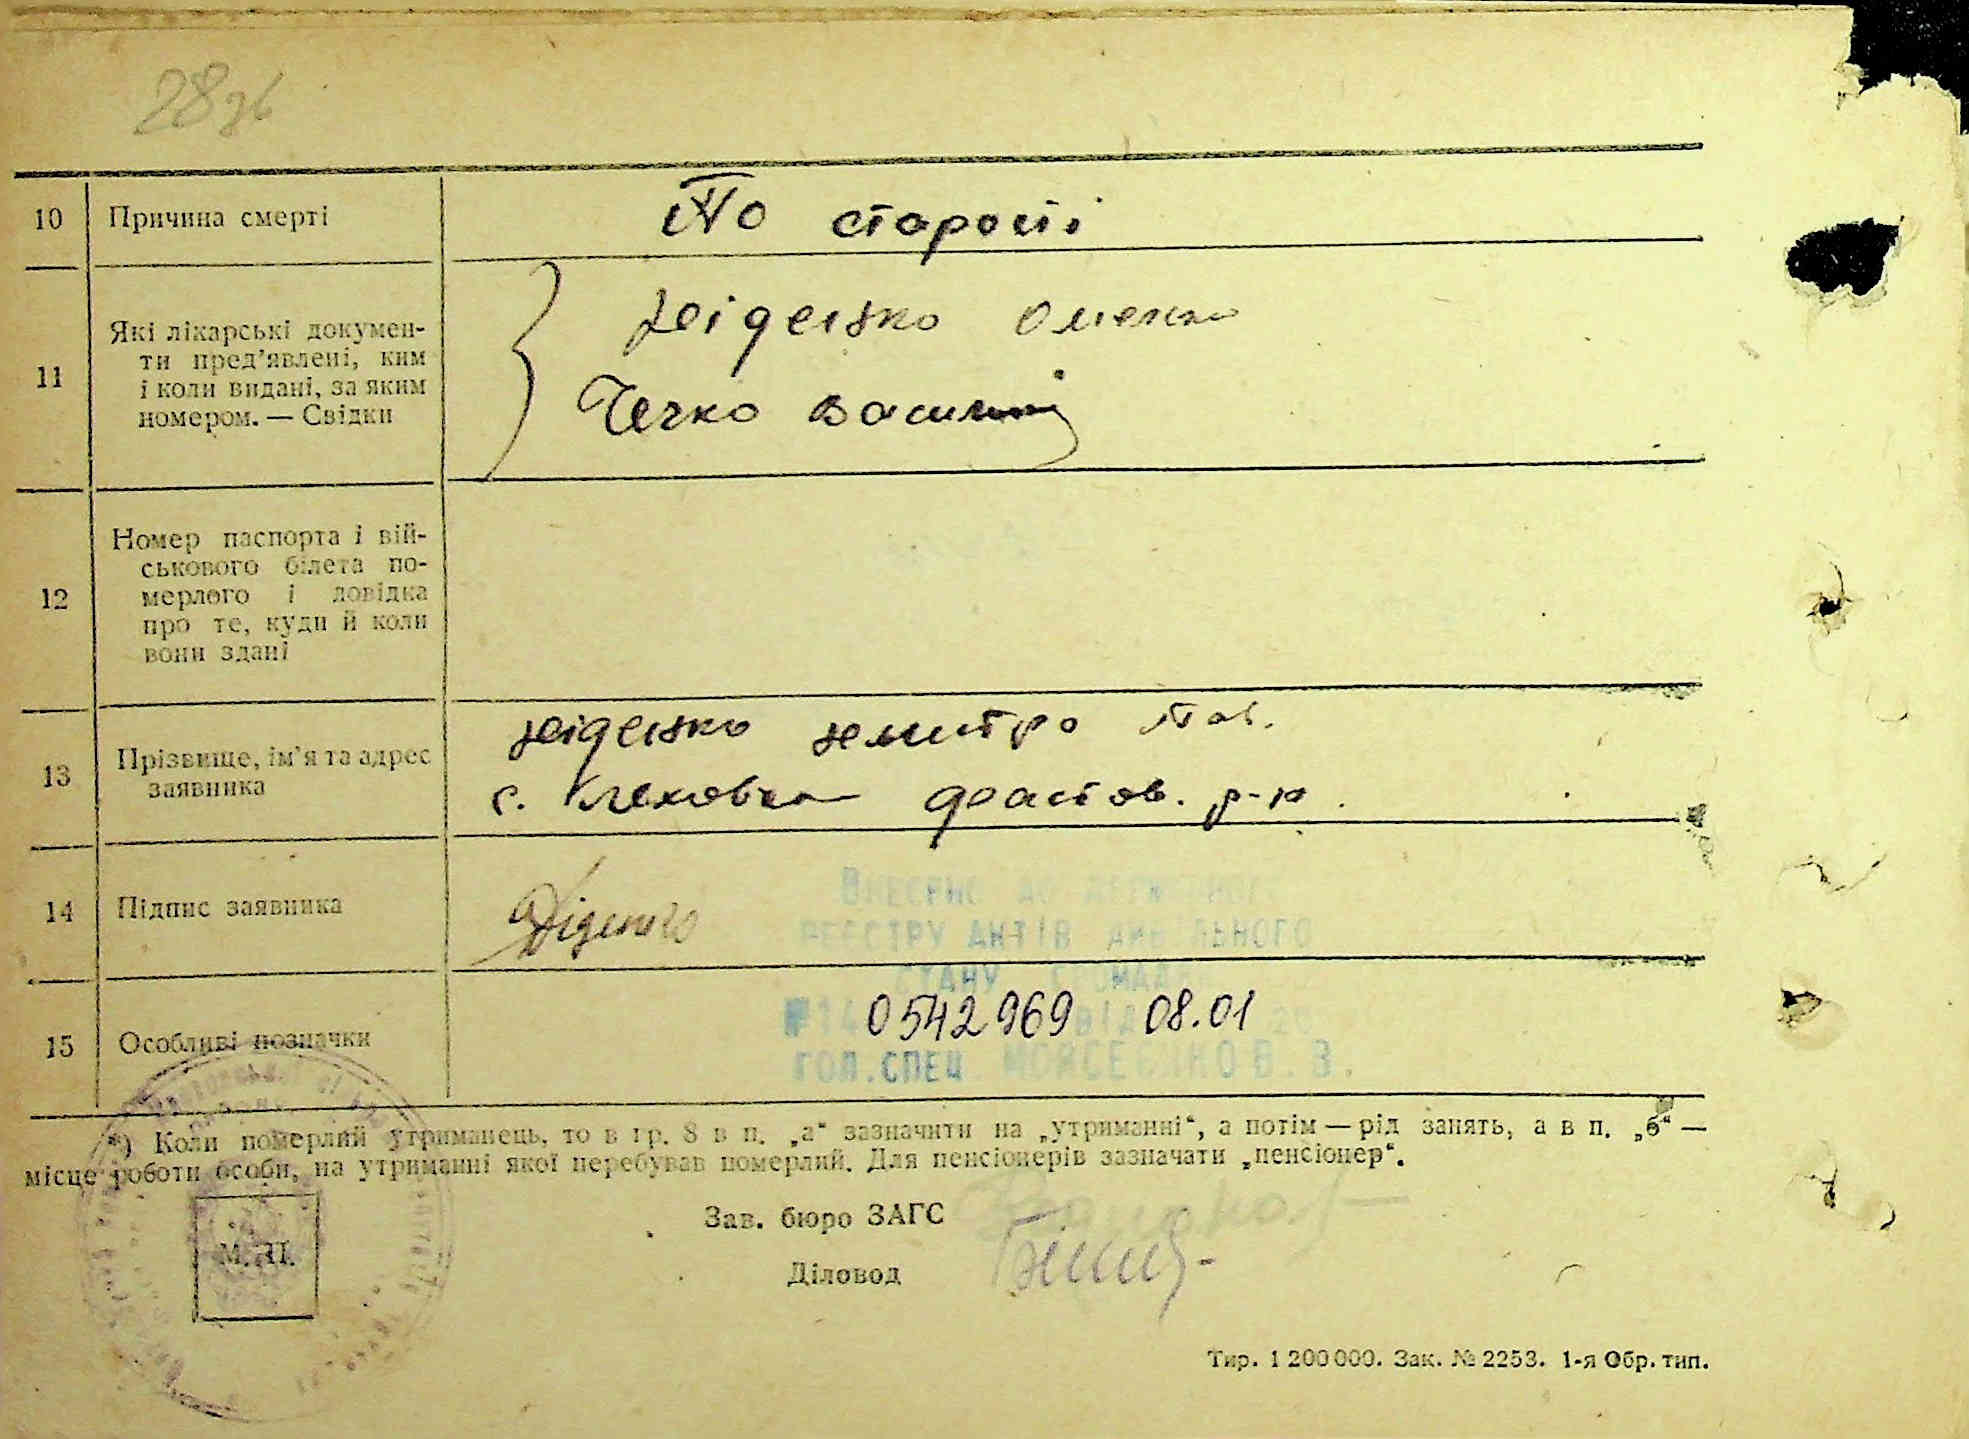 28зв
10 Причина смерті По старості
11 Які лікарські докумен-
ти пред'явлені, ким
і коли видані, за яким
номером. — Свідки
Діденко
Чечко Василій
12 Номер паспорта і вій-
ськового білета по-
мерлого і довідка
про те, куди й коли
вони здані
13 Прізвище, ім'я та адрес
заявника
Діденко Дмитро Пав.
с. Клеховка Фастов. р-н.
14 Підпис заявника Діденко
Внесено до державного
реєстру актів цивільного
стану громадян
15 Особливі позначки 0542969 08.01
гол. спец. Мойсеєнко В. В.
*) Коли померлий утриманець, то в гр. 8 в п. „а“ зазначити на „утриманні“, а потім — рід занять, а в п. „б“ —
місце роботи особи, на утриманні якої перебував померлий. Для пенсіонерів зазначати „пенсіонер“.
Зав. бюро ЗАГС
М. П.
Діловод
Тир. 1 200 000. Зак. № 2253. 1-я Обр. тип.